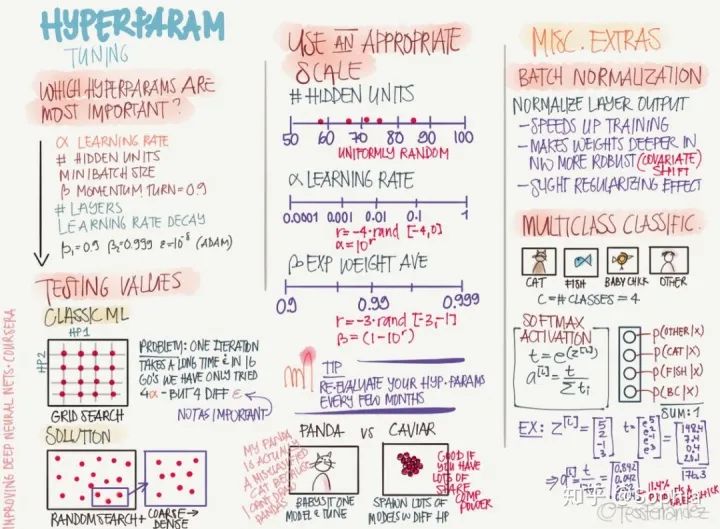 HYPERPARAM
TUNING
WHICH HYPERPARAMS ARE
MOST IMPORTANT?
α LEARNING RATE
# HIDDEN UNITS
MINIBATCH SIZE
β MOMENTUM TURN = 0.9
# LAYERS
LEARNING RATE DECAY
β₁=0.9 β₂=0.999 ε=10⁻⁸ (ADAM)
TESTING VALUES
CLASSIC ML
HP1
HP2
GRID SEARCH
PROBLEM: ONE ITERATION
TAKES A LONG TIME & IN 16
GO'S WE HAVE ONLY TRIED
4α - BUT 4 DIFF ε
NOT AS IMPORTANT
SOLUTION
RANDOM SEARCH +
COARSE →
DENSE
IMPROVING DEEP NEURAL NETS • COURSERA
USE AN APPROPRIATE
SCALE
# HIDDEN UNITS
50 60 70 80 90 100
UNIFORMLY RANDOM
α LEARNING RATE
0.0001 0.001 0.01 0.1 1
r=-4·rand [-4,0]
α=10ʳ
β EXP WEIGHT AVE
0.9 0.99 0.999
r=-3·rand [-3,-1]
β=(1-10ʳ)
TIP
RE-EVALUATE YOUR HYP. PARAMS
EVERY FEW MONTHS
PANDA VS CAVIAR
MY PANDA
IS ACTUALLY
A MISCLASSIFIED
CAT BECAUSE
I CAN'T DRAW
PANDAS
BABYSIT ONE
MODEL & TUNE
SPAWN LOTS OF
MODELS W DIFF HP
GOOD IF
YOU HAVE
LOTS OF
COMP
POWER
MISC. EXTRAS
BATCH NORMALIZATION
NORMALIZE LAYER OUTPUT
- SPEEDS UP TRAINING
- MAKES WEIGHTS DEEPER IN
NW MORE ROBUST (COVARIATE
SHIFT)
- SLIGHT REGULARIZING EFFECT
MULTICLASS CLASSIFIC.
CAT FISH BABY CHICK OTHER
C = # CLASSES = 4
SOFTMAX
ACTIVATION
t = e^(z^[L])
a^[L] = t / Σtᵢ
P(OTHER|X)
P(CAT|X)
P(FISH|X)
P(BC|X)
SUM: 1
EX: Z^[L] = [5 2 -1 3] t = [e⁵ e² e⁻¹ e³] = [148.4 7.4 0.4 20.1]
176.3
知乎
@TessFerrandez